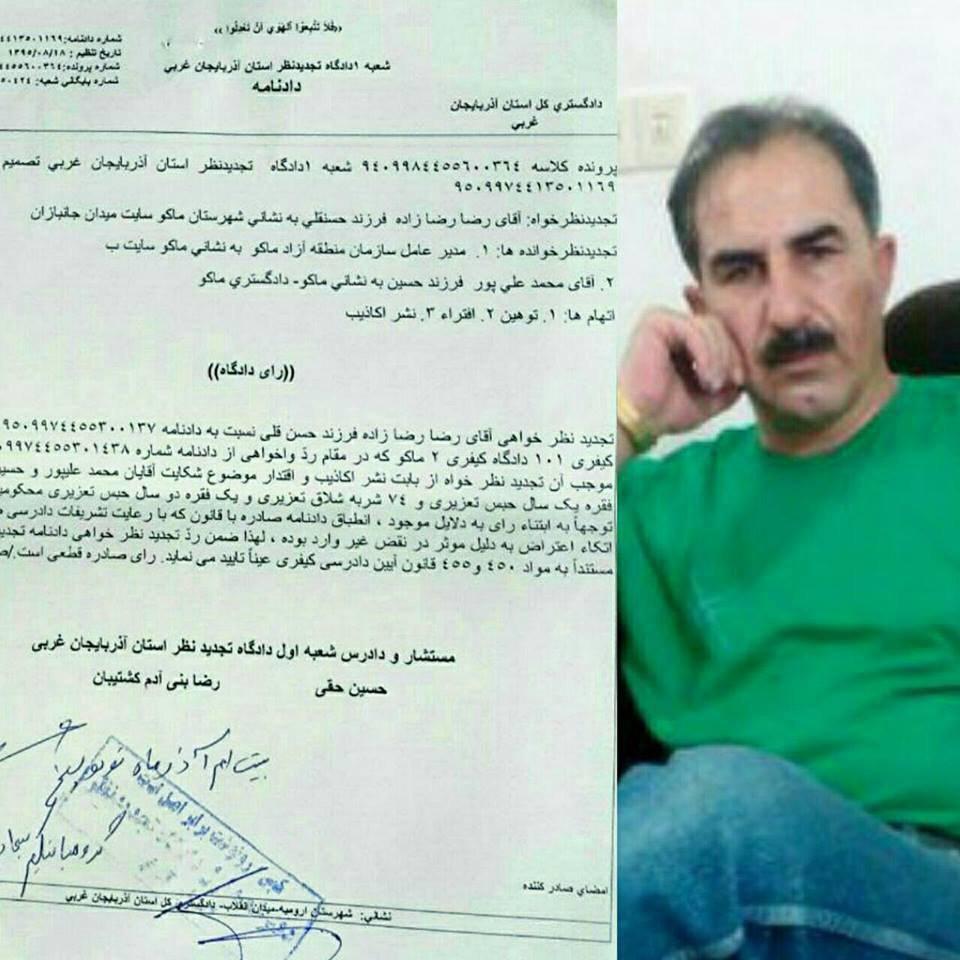 «فَلاَ تَتَّبِعُوا اَلْهَوي اَنْ تَعْدِلُوا»
شماره دادنامه:۴۴۱۳۵۰۱۱۶۹
تاریخ تنظیم : ۱۳۹۵/۰۸/۱۸
شماره پرونده:۴۴۵۵۶۰۰۳۶۴
شماره بایگانی شعبه: ۵۰۴۲۴
شعبه ۱دادگاه تجدیدنظر استان آذربایجان غربي
دادنامه
دادگستري کل استان آذربایجان
غربي
پرونده کلاسه ۹۴۰۹۹۸۴۴۵۵۶۰۰۳۶۴ شعبه ۱دادگاه تجدیدنظر استان آذربایجان غربي تصمیم
۹۵۰۹۹۷۴۴۱۳۵۰۱۱۶۹
تجدیدنظرخواه: آقای رضا رضا زاده فرزند حسنقلي به نشاني شهرستان ماکو سایت میدان جانبازان
تجدیدنظرخوانده ها: ۱. مدیر عامل سازمان منطقه آزاد ماکو به نشاني ماکو سایت ب
۲. آقای محمد علي پور فرزند حسین به نشاني ماکو- دادگستري ماکو
اتهام ها: ۱. توهین ۲. افتراء ۳. نشر اکاذیب
((رای دادگاه))
تجدید نظر خواهی آقای رضا رضا زاده فرزند حسن قلی نسبت به دادنامه ۹۵۰۹۹۷۴۴۵۵۳۰۰۱۳۷
کیفری ۱۰۱ دادگاه کیفری ۲ ماکو که در مقام ردّ واخواهی از دادنامه شماره ۰۹۹۷۴۴۵۵۳۰۱۴۳۸
موجب آن تجدید نظر خواه از بابت نشر اکاذیب و اقتدار موضوع شکایت آقایان محمد علیپور و حسین
فقره یک سال حبس تعزیری و ۷۴ شربه شلاق تعزیری و یک فقره دو سال حبس تعزیری محکومی
توجهاً به ابتناء رای به دلایل موجود ، انطباق دادنامه صادره با قانون که با رعایت تشریفات دادرسی
اتکاء اعتراض به دلیل موثر در نقض غیر وارد بوده ، لهذا ضمن ردّ تجدید نظر خواهی دادنامه تجدید
مستنداً به مواد ۴۵۰ و۴۵۵ قانون آیین دادرسی کیفری عیناً تایید می نماید. رای صادره قطعی است./ص
مستشار و دادرس شعبه اول دادگاه تجدید نظر استان آذربایجان غربی
حسین حقی رضا بنی آدم کشتیبان
برابر اصل است
امضای صادر کننده
نشاني: شهرستان ارومیه-میدان انقلاب- دادگستري کل استان آذربایجان غربي